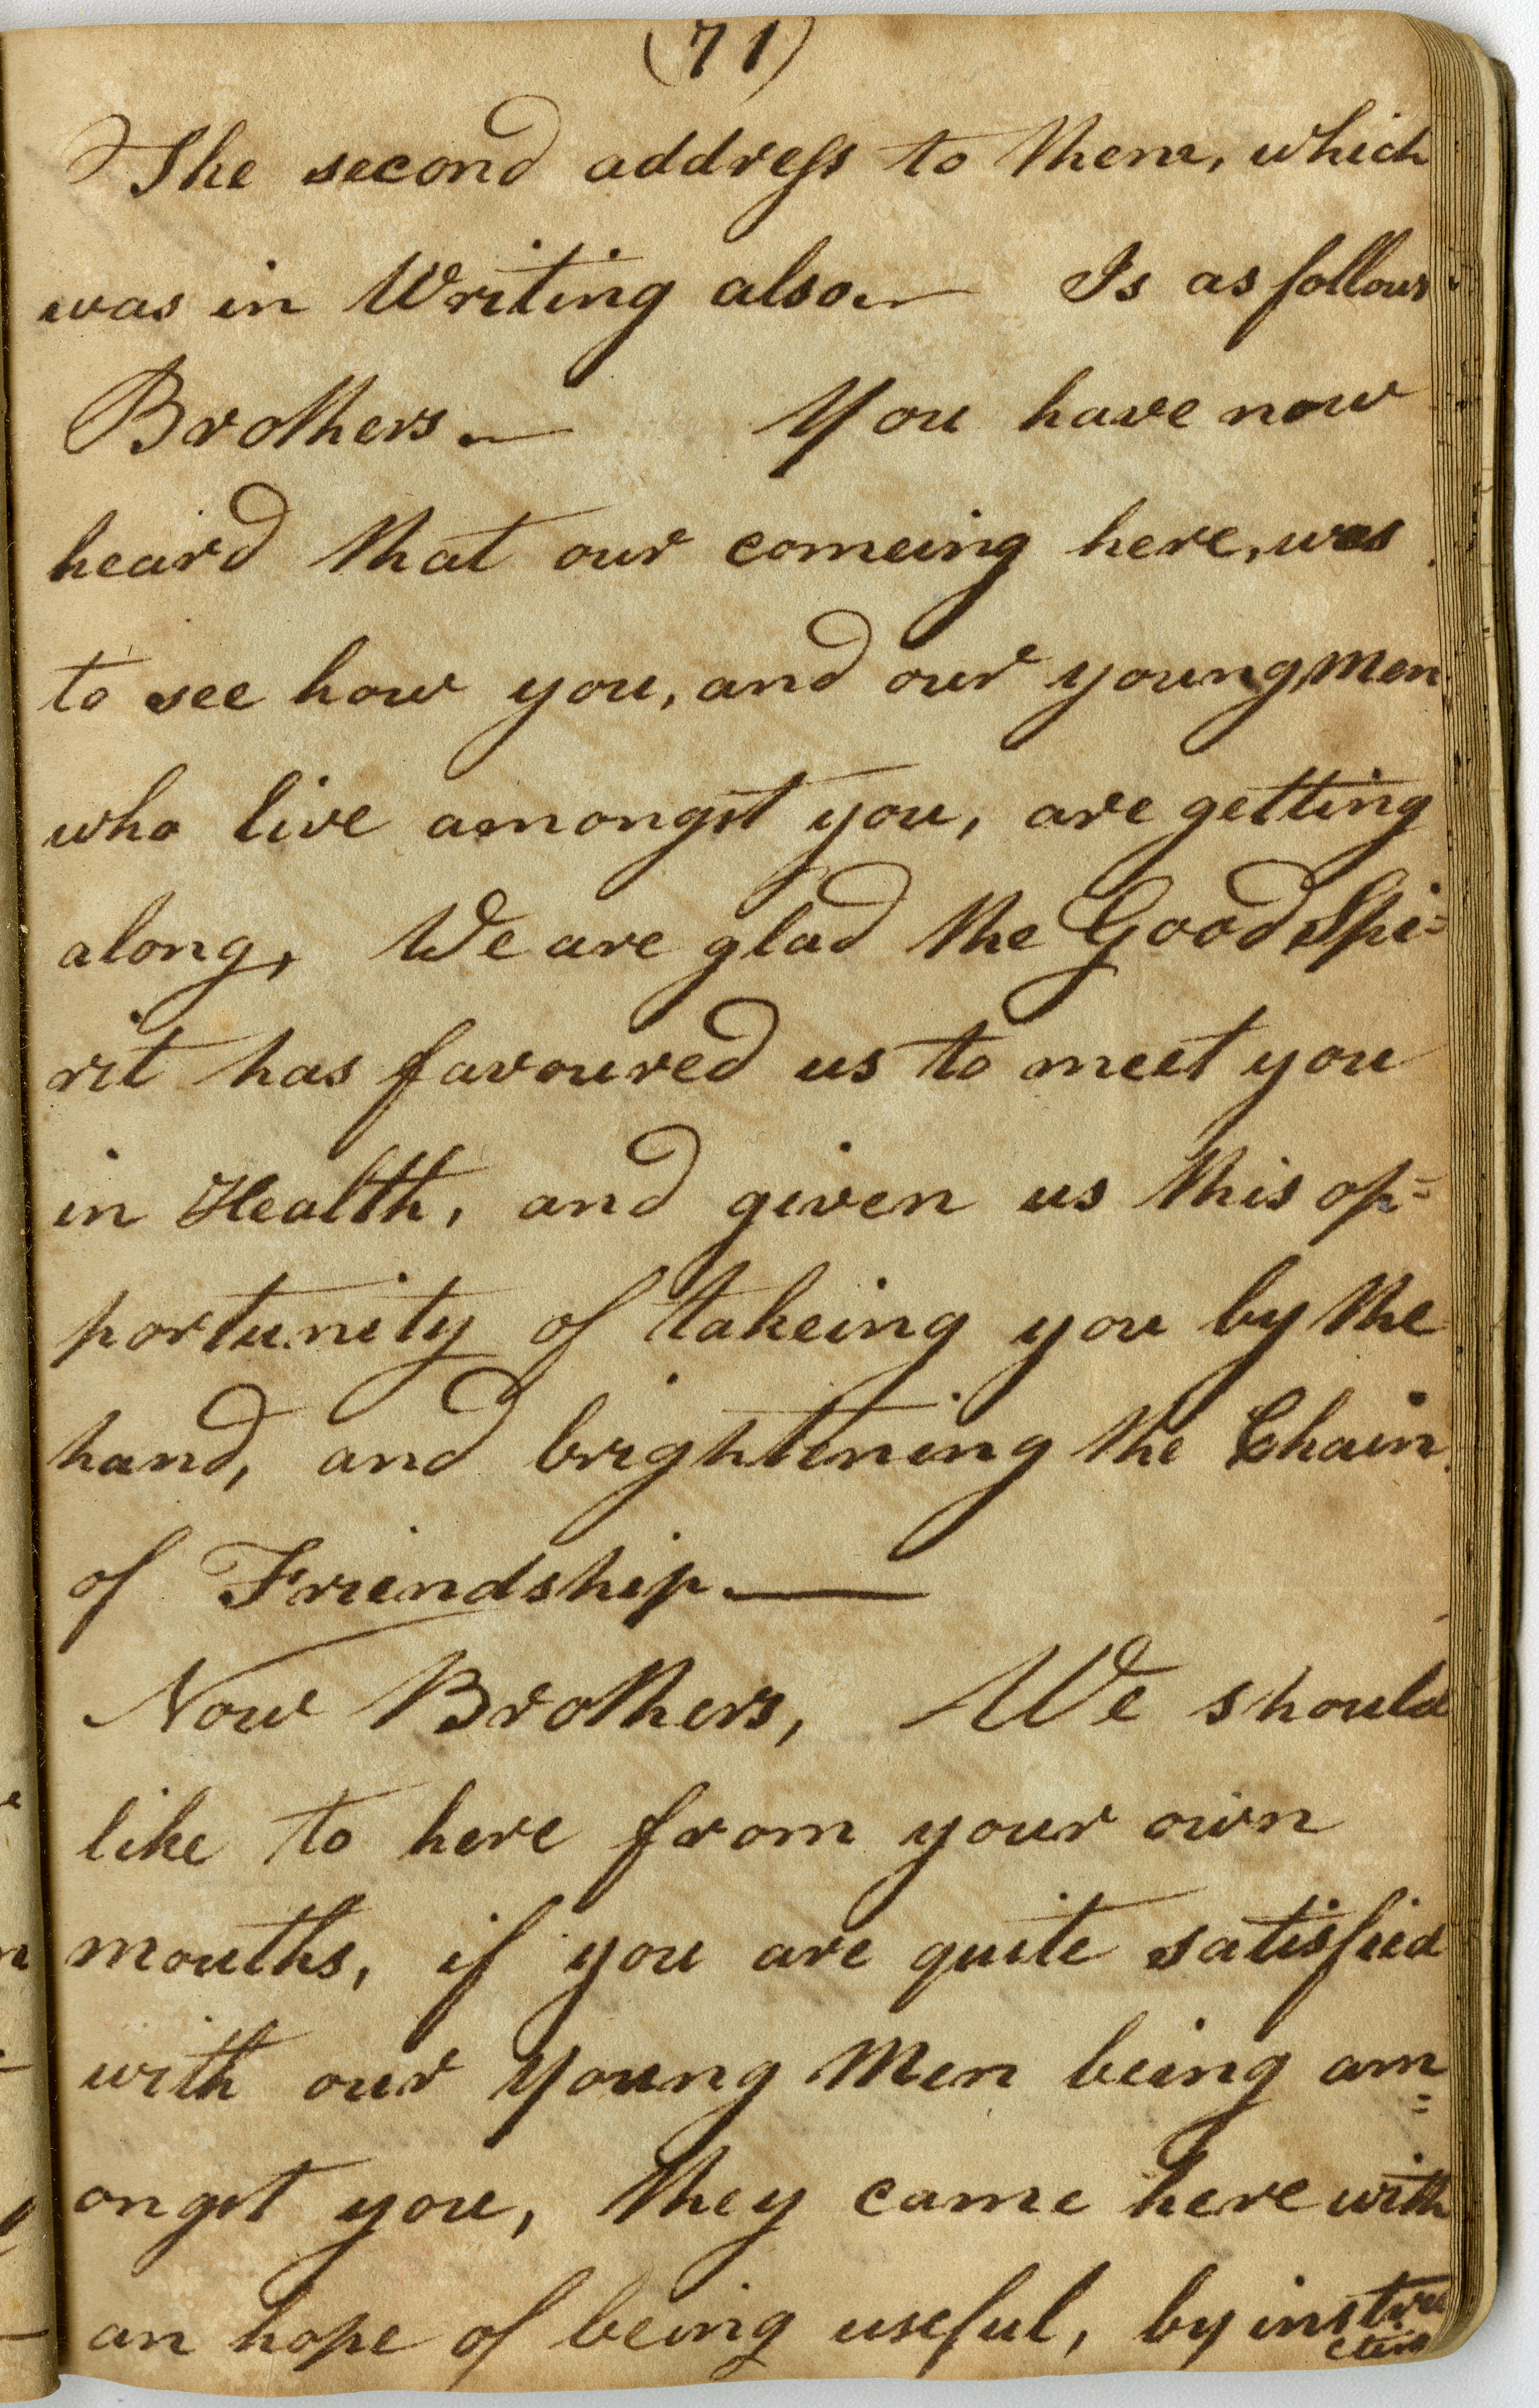 (71)
The second address to them, which
was in Writing also.— Is as follows
Brothers.— You have now
heard that our comeing here, was
to see how you, and our young Men
who live amongst you, are getting
along, We are glad the Good Spi=
rit has favoured us to meet you
in Health, and given us this op=
portunity of takeing you by the
hand, and brightening the Chain
of Friendship.—
Now Brothers, We should
like to here from your own
mouths, if you are quite satisfied
with our Young Men being am=
ongst you, they came here with
an hope of being useful, by instru
cting